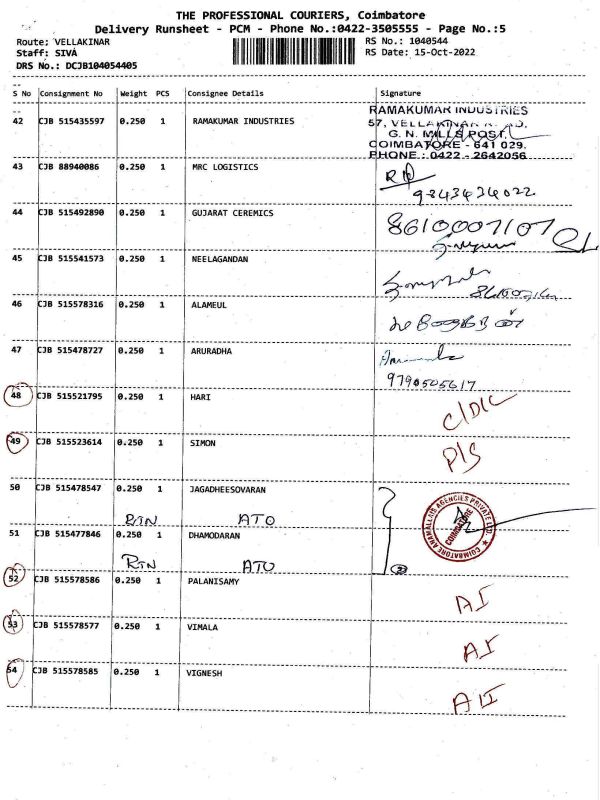 THE PROFESSIONAL COURIERS, Coimbatore
Delivery Runsheet - PCM - Phone No.:0422-3505555 - Page No.:5
Route: VELLAKINAR RS No.: 1040544
Staff: SIVA RS Date: 15-Oct-2022
DRS No.: DCJB104054405
S No Consignment No Weight PCS Consignee Details Signature
42 CJB 515435597 0.250 1 RAMAKUMAR INDUSTRIES
RAMAKUMAR INDUSTRIES
57, VELLAKINAR
G. N. MILLS POST,
COIMBATORE - 641 029.
PHONE : 0422 - 2642056
43 CJB 88940086 0.250 1 MRC LOGISTICS
9843434022
44 CJB 515492890 0.250 1 GUJARAT CEREMICS
8610007107
45 CJB 515541573 0.250 1 NEELAGANDAN
46 CJB 515578316 0.250 1 ALAMEUL
47 CJB 515478727 0.250 1 ARURADHA
9790505617
48 CJB 515521795 0.250 1 HARI C/DLC
49 CJB 515523614 0.250 1 SIMON P/S
50 CJB 515478547 0.250 1 JAGADHEESOVARAN
RTN ATO
COIMBATORE ANAMALLAIS AGENCIES PRIVATE LTD.
COIMBATORE
51 CJB 515477846 0.250 1 DHAMODARAN
RTN ATO
52 CJB 515578586 0.250 1 PALANISAMY AI
53 CJB 515578577 0.250 1 VIMALA AI
54 CJB 515578585 0.250 1 VIGNESH AI